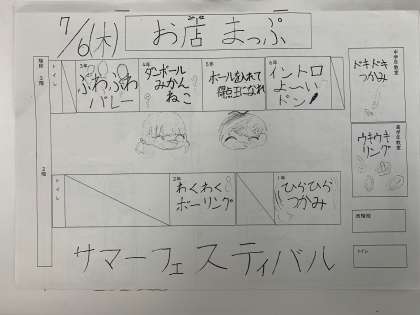 7/6(木)
お店 まっぷ
階段
3階
トイレ
3年
ふわふわ
バレー
4年
ダンボール
みかん
ねこ
5年
ボールを入れて
得点王になれ
6年
イントロ
よ〜い
ドン!
中学生教室
ドキドキ
つかみ
高学生教室
ウキウキ
リング
2階
トイレ
2年
わくわく
ボーリング
1年
ひらひら
つかみ
トイレ
サマーフェスティバル